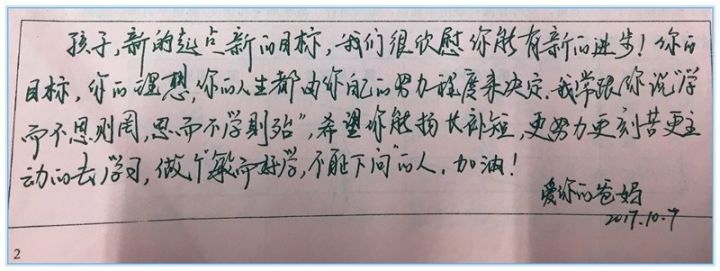 孩子,新的起点新的目标,我们很欣慰你能有新的进步!你的
目标,你的理想,你的人生都由你自己的努力程度来决定.我常跟你说"学
而不思则罔,思而不学则殆",希望你能扬长补短,更努力更刻苦更主
动的去学习,做个"敏而好学,不耻下问"的人,加油!
爱你的爸妈
2017.10.7
2